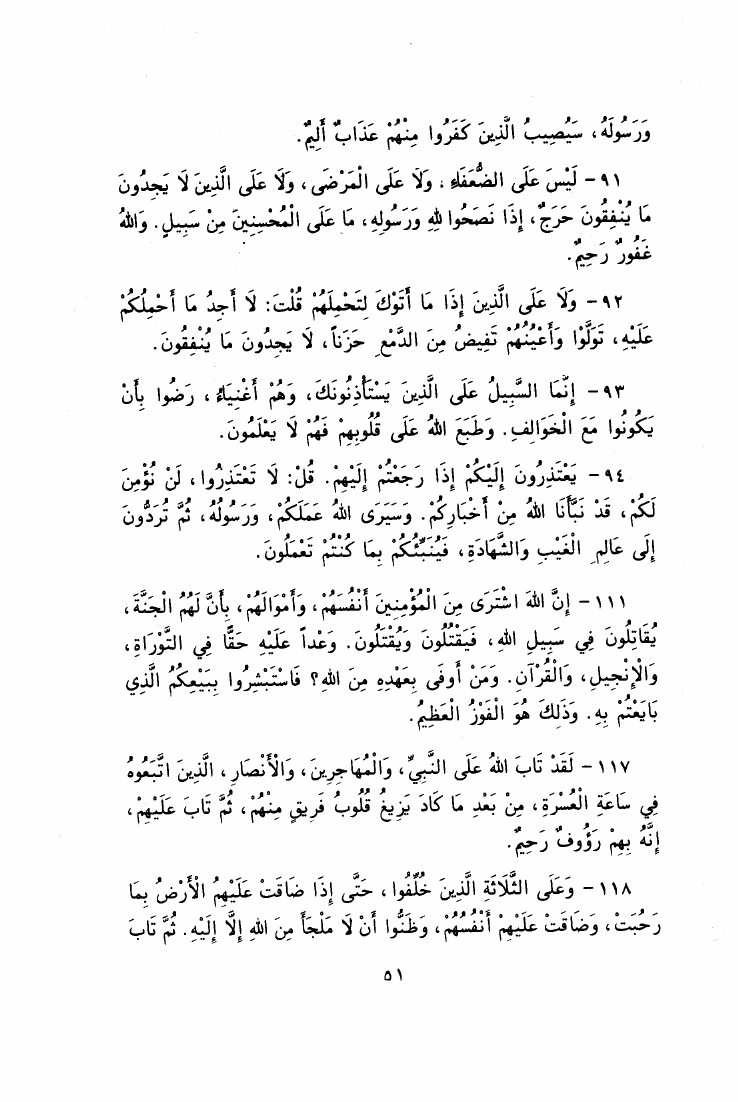 وَرَسُولَهُ، سَيُصِيبُ الَّذِينَ كَفَرُوا مِنْهُمْ عَذَابٌ أَلِيمٌ.
٩١ - لَيْسَ عَلَى الضُّعَفَاءِ، وَلَا عَلَى الْمَرْضَى، وَلَا عَلَى الَّذِينَ لَا يَجِدُونَ
مَا يُنْفِقُونَ حَرَجٌ، إِذَا نَصَحُوا لِلهِ وَرَسُولِهِ، مَا عَلَى الْمُحْسِنِينَ مِنْ سَبِيلٍ. وَاللهُ
غَفُورٌ رَحِيمٌ.
٩٢ - وَلَا عَلَى الَّذِينَ إِذَا مَا أَتَوْكَ لِتَحْمِلَهُمْ قُلْتَ: لَا أَجِدُ مَا أَحْمِلُكُمْ
عَلَيْهِ، تَوَلَّوْا وَأَعْيُنُهُمْ تَفِيضُ مِنَ الدَّمْعِ حَزَناً، لَا يَجِدُونَ مَا يُنْفِقُونَ.
٩٣ - إِنَّمَا السَّبِيلُ عَلَى الَّذِينَ يَسْتَأْذِنُونَكَ، وَهُمْ أَغْنِيَاءُ، رَضُوا بِأَنْ
يَكُونُوا مَعَ الْخَوَالِفِ. وَطَبَعَ اللهُ عَلَى قُلُوبِهِمْ فَهُمْ لَا يَعْلَمُونَ.
٩٤ - يَعْتَذِرُونَ إِلَيْكُمْ إِذَا رَجَعْتُمْ إِلَيْهِمْ. قُلْ: لَا تَعْتَذِرُوا، لَنْ نُؤْمِنَ
لَكُمْ، قَدْ نَبَّأَنَا اللهُ مِنْ أَخْبَارِكُمْ. وَسَيَرَى اللهُ عَمَلَكُمْ، وَرَسُولُهُ، ثُمَّ تُرَدُّونَ
إِلَى عَالِمِ الْغَيْبِ وَالشَّهَادَةِ، فَيُنَبِّئُكُمْ بِمَا كُنْتُمْ تَعْمَلُونَ.
١١١ - إِنَّ اللهَ اشْتَرَى مِنَ الْمُؤْمِنِينَ أَنْفُسَهُمْ، وَأَمْوَالَهُمْ، بِأَنَّ لَهُمُ الْجَنَّةَ،
يُقَاتِلُونَ فِي سَبِيلِ اللهِ، فَيَقْتُلُونَ وَيُقْتَلُونَ. وَعْداً عَلَيْهِ حَقًّا فِي التَّوْرَاةِ،
وَالْإِنْجِيلِ، وَالْقُرْآنِ. وَمَنْ أَوفَى بِعَهْدِهِ مِنَ اللهِ؟ فَاسْتَبْشِرُوا بِبَيْعِكُمُ الَّذِي
بَايَعْتُمْ بِهِ. وَذَلِكَ هُوَ الْفَوْزُ الْعَظِيمُ.
١١٧ - لَقَدْ تَابَ اللهُ عَلَى النَّبِيِّ، وَالْمُهَاجِرِينَ، وَالْأَنْصَارِ، الَّذِينَ اتَّبَعُوهُ
فِي سَاعَةِ الْعُسْرَةِ، مِنْ بَعْدِ مَا كَادَ يَزِيغُ قُلُوبُ فَرِيقٍ مِنْهُمْ، ثُمَّ تَابَ عَلَيْهِمْ،
إِنَّهُ بِهِمْ رَؤُوفٌ رَحِيمٌ.
١١٨ - وَعَلَى الثَّلَاثَةِ الَّذِينَ خُلِّفُوا، حَتَّى إِذَا ضَاقَتْ عَلَيْهِمُ الْأَرْضُ بِمَا
رَحُبَتْ، وَضَاقَتْ عَلَيْهِمْ أَنْفُسُهُمْ، وَظَنُّوا أَنْ لَا مَلْجَأَ مِنَ اللهِ إِلَّا إِلَيْهِ. ثُمَّ تَابَ
٥١